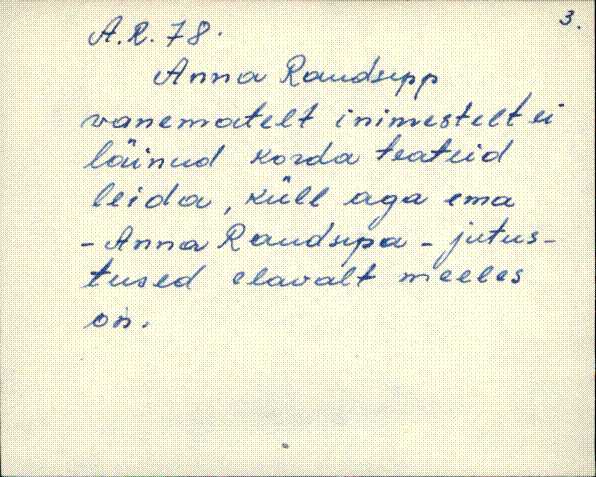 3.
A.R. 78.
Anna Raudsepp
vanematelt inimestelt ei
läinud korda teateid
leida, küll aga ema
- Anna Raudsepa - jutus-
tused elavalt meeles
on.